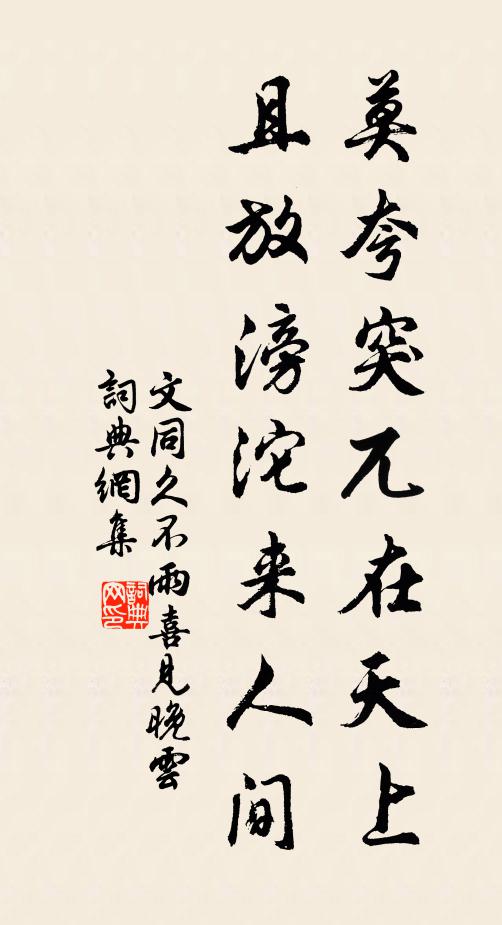 莫夸突兀在天上
且放滂沱来人间
文同久不雨喜見晚雲
詞典網集
詞典
网印